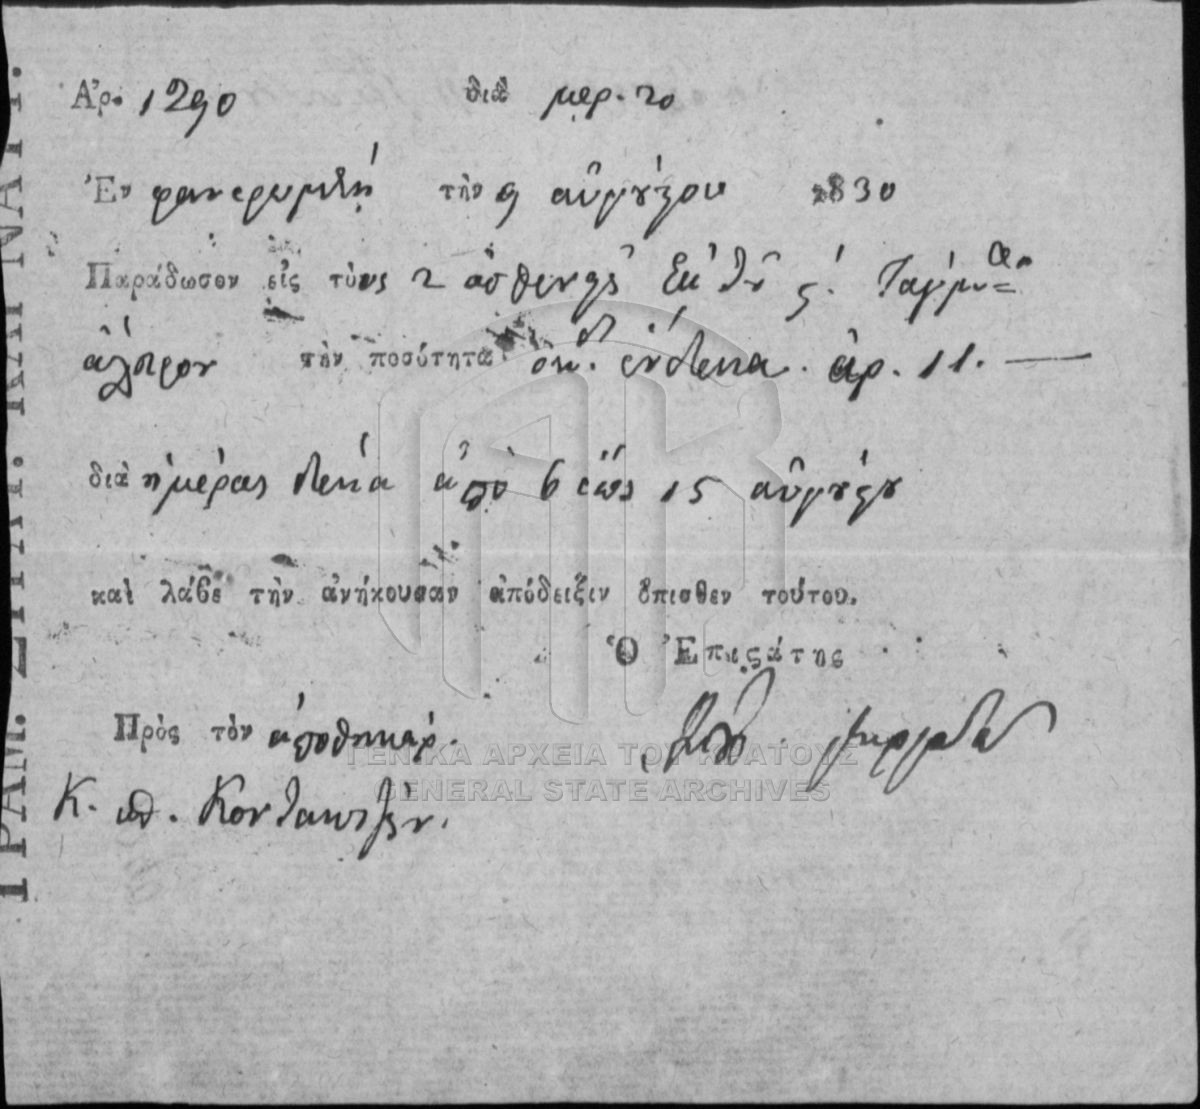 Ἀρ. 1290 διὰ μερ. 20
Ἐν φανερωμένῃ τὴν 9 αὐγούςου 1830
Παράδωσον εἰς τοὺς 2 ἀσθενεῖς ἐκ τοῦ ς΄. Ταγμ
ἄλευρον τὴν ποσότητα ὀκ. ἕνδεκα. ἀρ. 11. —
διὰ ἡμέρας δέκα ἀπὸ 6 ἕως 15 αὐγούςου
καὶ λάβε τὴν ἀνήκουσαν ἀπόδειξιν ὄπισθεν τούτου.
Ὁ Ἐπιςάτης
Πρὸς τὸν ἀποθηκάρ.
Κ.
ΓΕΝΙΚΑ ΑΡΧΕΙΑ ΤΟΥ ΚΡΑΤΟΥΣ
GENERAL STATE ARCHIVES